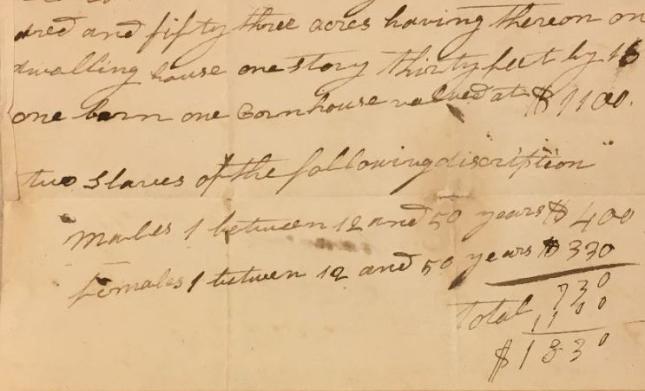 dred and fifty three acres having thereon on
dwalling house one story thirty feet by 16
one barn one Cornhouse valued at $1100.
two Slaves of the following discription
Males 1 between 12 and 50 years $ 400
Females 1 between 12 and 50 years $ 330
730
Total 1100
$ 1830